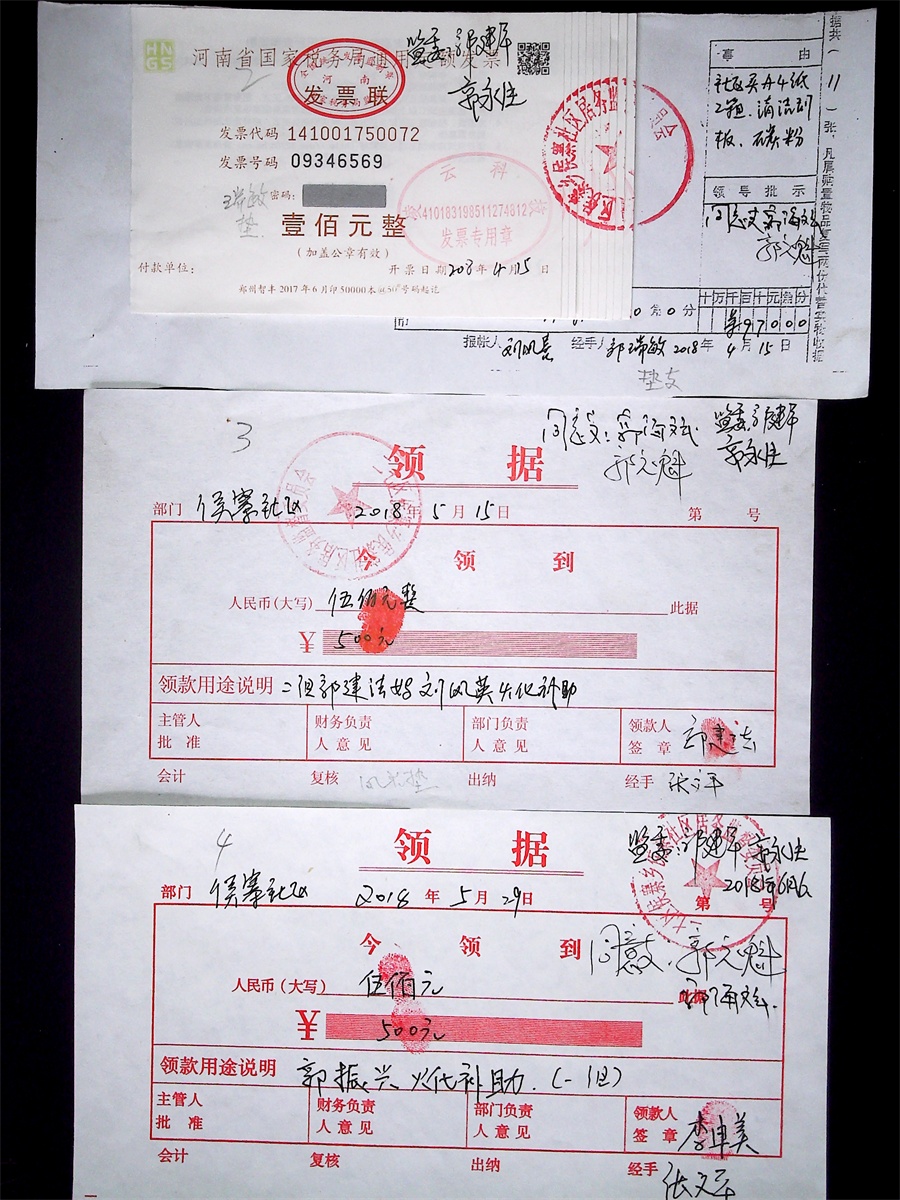 HN
GS
河南省国家税务局通用定额发票
发票联
监委:郭建军
郭永生
2
发票代码 141001750072
发票号码 09346569
瑞敏
垫
密码:
壹佰元整
(加盖公章有效)
云科
410183198511274812
发票专用章
付款单位:
开票日期 2018年4月15日
郑州智丰2017年6月印50000本
号码起讫
据共(11)张
事由
社区买A4纸
2箱、清洁刮
板、碳粉
领导批示
郭文魁
0角0分
十万千百十元角分
¥97000
报帐人 刘凤喜 经手人 郭瑞敏 2018年4月15日
垫支
3
领据
同意支:郭海斌
郭文魁
监委:郭建军
郭永生
部门 侯寨社区 2018年5月15日 第 号
今领到
人民币(大写) 伍佰元整 此据
¥ 500元
领款用途说明 二组郭建法姐刘凤英火化补助
主管人
批准
财务负责
人意见
部门负责
人意见
领款人
签章 郭建法
会计 复核 出纳 经手 张文军
4
领据
监委:郭建军 郭永生
2018年6月6
部门 侯寨社区 2018年5月29日 第 号
今领到
同意支:郭文魁
郭海斌
人民币(大写) 伍佰元 此据
¥ 500元
领款用途说明 郭振兴火化补助.(一组)
主管人
批准
财务负责
人意见
部门负责
人意见
领款人
签章 李申美
会计 复核 出纳 经手 张文军